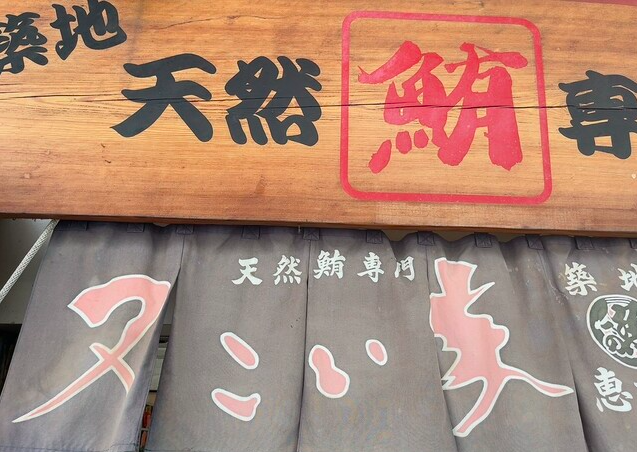 築地 天然 鮪 専
天然鮪専門
又こい家
築地
恵